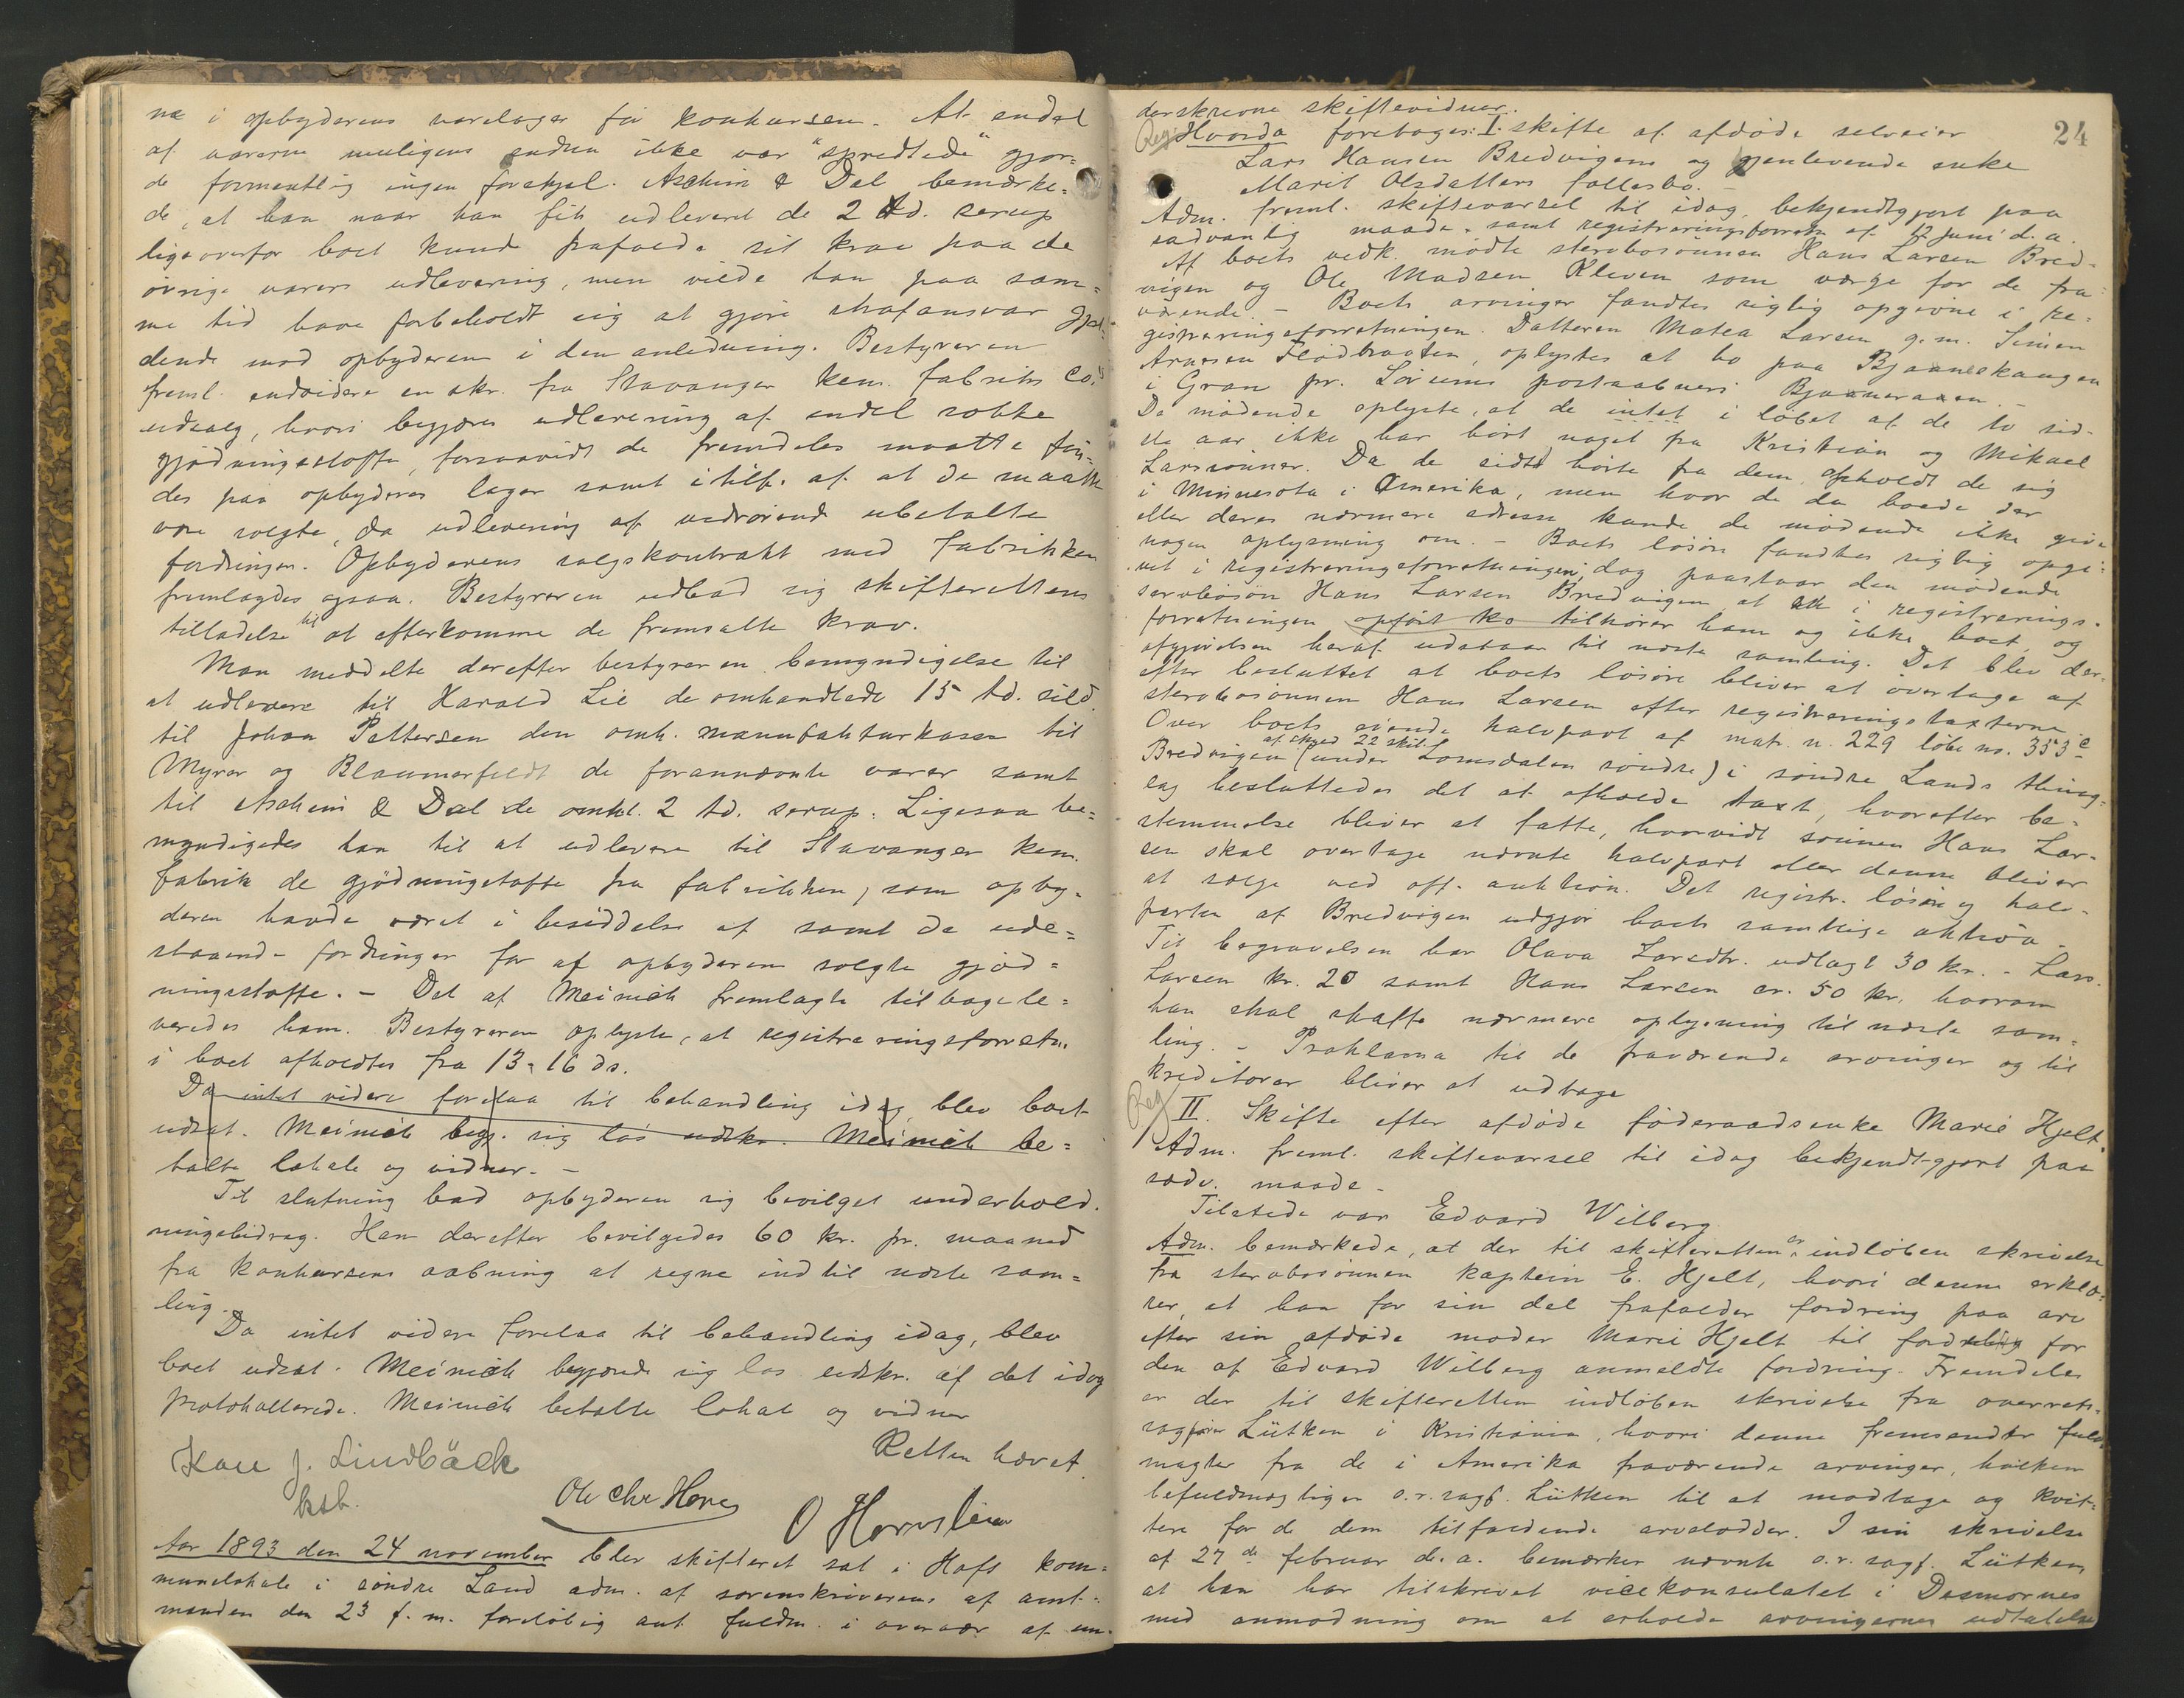 ne i opbyderens varelager før konkursen. At endel
af varerne muligens endnu ikke var "spredtede" gjor=
de formentlig ingen forskjel. Aschim & Dal bemærke=
de, at han naar han fik udleveret de 2 td. serup
ligeoverfor boet kunde frafalde sit krav paa de
övrige varers udlevering, men vilde han paa sam=
me tid have forbeholdt sig at gjøre strafansvar gjæl=
dende mod opbyderen i den anledning. Bestyreren
freml. endvidere en skr. fra Stavanger kem. fabriks Co.s
udsalg, hvori begjæres udlevering af endel sække
gjødningsstoffe, forsaavidt de fremdeles maatte fin=
des paa opbyderes lager samt i tilf. af at de maatte
være solgte, da udlevering af vedrørende ubetalte
fordringer. Opbyderens salgskontrakt med fabrikken
fremlagdes ogsaa. Bestyreren udbad sig skifterettens
tilladelse til at efterkomme de fremsatte krav.
Man meddelte derefter bestyreren bemyndigelse til
at udlevere til Harald Lie de omhandlede 15 td. sild,
til Johan Pettersen den omh. manufakturkasse til
Myrer og Blaumerfeldt de forannævnte varer samt
til Aschim & Dal de omhl. 2 td. serup. Ligesaa be=
myndigedes han til at udlevere til Stavanger kem.
fabrik de gjødningstoffe fra fabrikken, som opby=
deren havde været i besiddelse af samt de ude=
staaende fordringer for af opbyderen solgte gjød=
ningsstoffe. - Det af Meinich fremlagte tilbagele=
veredes ham. Bestyreren oplyste, at registreringsforretn.
i boet afholdtes fra 13-16 ds.
Da intet videre forelaa til behandling idag, blev boet
udsat. Meinich begj. sig løs udskr. Meinich be=
talte lokale og vidner. -
Til slutning bad opbyderen sig bevilget underhold.
ningsbidrag. Ham derefter bevilgedes 60 kr. pr. maaned
fra konkursens aabning at regne indtil næste sam=
ling.
Da intet videre forelaa til behandling idag, blev
boet udsat. Meinich begjærede sig løs udskr. af det idag
protokollerede. Meinich betalte lokale og vidner
Retten hævet.
Kare J. Lindbäck
kst.
Ole Chr Hove
O Hornslien
Aar 1893 den 24 november blev skifteret sat i Hofs kom=
munelokale i søndre Land adm. af sorenskriverens af amt=
manden den 23 f. m. foreløbig ant. fuldm. i overvær af un=
24
derskrevne skiftevidner.
Reg. Hvorda foretoges: I. skifte af afdøde selveier
Lars Hansen Bredvigens og gjenlevende enke
Marit Olsdatters fællesbo. -
Adm. freml. skiftevarsel til idag, bekjendtgjort paa
sædvanlig maade, samt registreringsforretn. af 12 juni d. a.
Af boets vedk. mødte stervbosønnen Hans Larsen Bred=
vigen og Ole Madsen Kleven som værge for de fra=
værende. - Boets arvinger fandtes rigtig opgivne i re=
gistreringsforretningen. Datteren Matea Larsen g. m. Simen
Arnesen Flødbraaten, oplystes at bo paa Bjanneskaugen
i Gran pr. Lørums postaabneri Bjanneraaen. -
De mødende oplyste, at de intet i løbet af de to sid=
ste aar ikke har hørt noget fra Kristian og Mikael
Larssønner. Da de sidst hørte fra dem, opholdt de sig
i Minnesota i Amerika, men hvor de da boede der
eller deres nærmere adresse kunde de mødende ikke give
nogen oplysning om. - Boets løsøre fandtes rigtig opgi=
vet i registreringsforretningen; dog paastaar den mødende
stervbosøn Hans Larsen Bredvigen, at en i registrerings=
forretningen opført ko tilhører ham og ikke boet, og
afgjørelsen heraf udstaar til næste samling. Det blev der=
efter besluttet at boets løsøre bliver at overtage af
stervbosønnen Hans Larsen efter registreringstaxterne.
Over boets eiende halvpart af matr. n. 229 løbe no. 353c
Bredvigen (under Lomsdalen søndre) af skyld 22 skil. i søndre Lands thing=
lag besluttedes det at afholde taxt, hvorefter be=
stemmelse bliver at fatte, hvorvidt sønnen Hans Lar=
sen skal overtage nævnte halvpart eller denne bliver
at sælge ved off. auktion. Det registr. løsøre og halv=
parten af Bredvigen udgjør boets samtlige aktiva. -
Til begravelsen har Olava Larsdtr. udlagt 30 kr. - Lars
Larsen kr. 20 samt Hans Larsen er. 50 kr. hvorom
han skal skaffe nærmere oplysning til næste sam=
ling. - Proklama til de fraværende arvinger og til
kreditorer bliver at udtage
Reg II. Skifte efter afdøde føderaadsenke Marie Hjelt.
Adm. freml. skiftevarsel til idag bekjendtgjort paa
sædv. maade -
Tilstede var Edvard Wilberg
Adm. bemærkede, at der til skifteretten er indløben skrivelse
fra stervbosønnen kaptein E. Hjelt, hvori denne erklæ=
rer, at han for sin del frafalder fordring paa arv
efter sin afdøde moder Marie Hjelt til for for
den af Edvard Wilberg anmeldte fordring. Fremdeles
er der til skifteretten indløben skrivelse fra overrets=
sagfører Lütken i Kristiania, hvori denne fremsender fuld=
magter fra de i Amerika fraværende arvinger, hvilken
befuldmægtiger o.r.sagf. Lütken til at modtage og kvit=
tere for de dem tilfaldende arvelodder. I sin skrivelse
af 27de februar d. a. bemærker nævnte o.r.sagf. Lütken,
at han har tilskrevet vicekonsulatet i Desmornes
med anmodning om at erholde arvingernes udtalelse